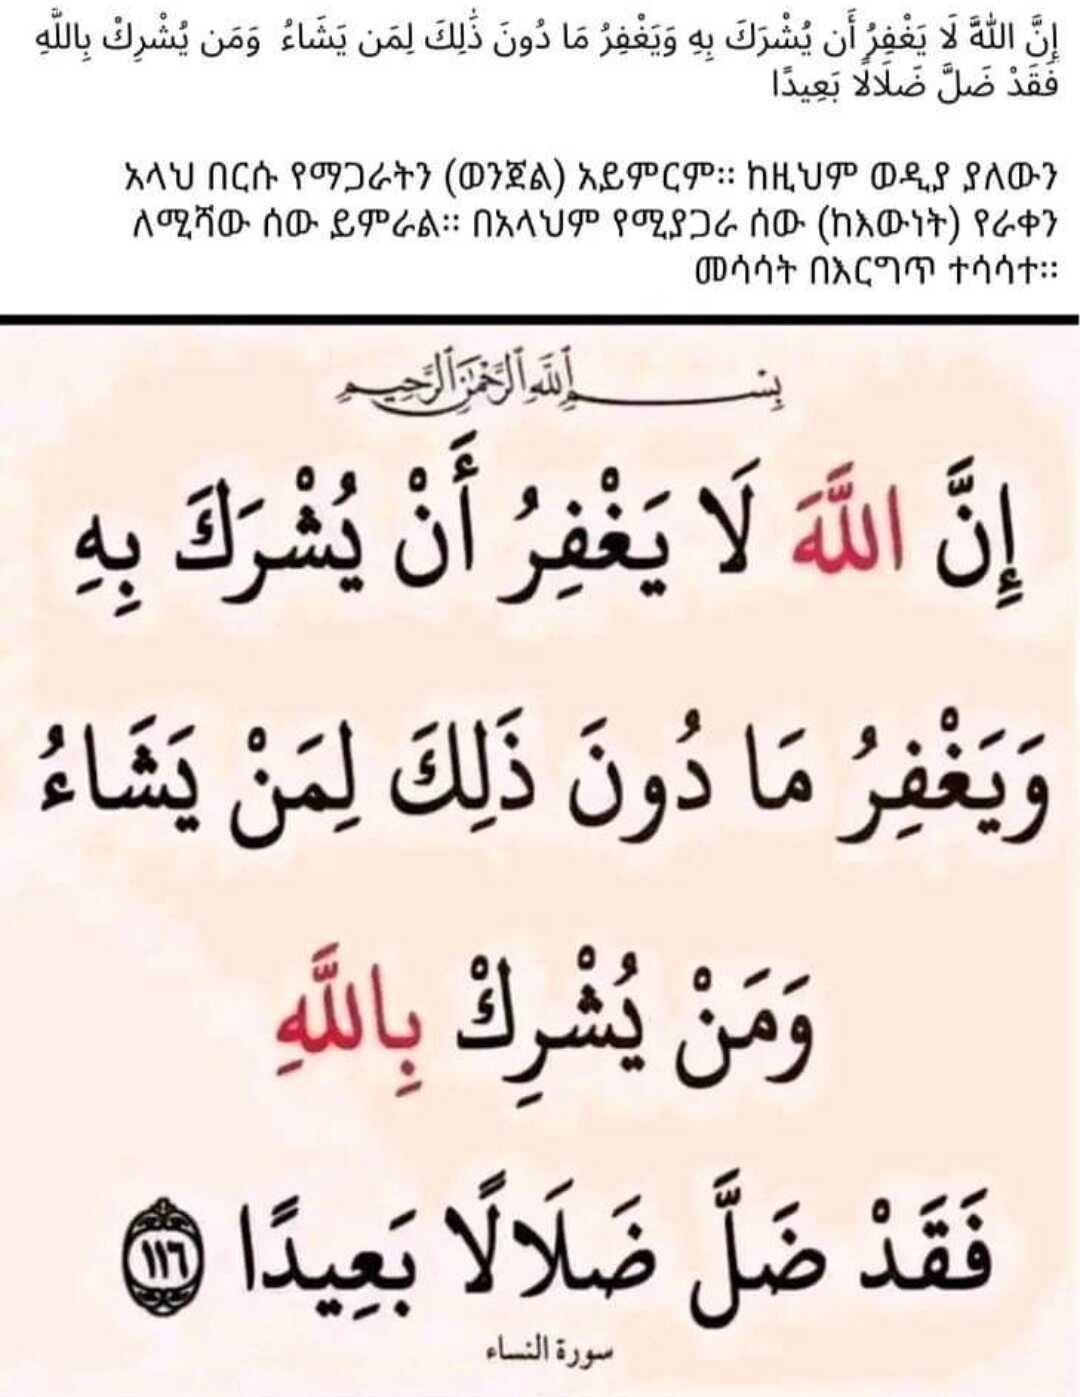 إِنَّ اللَّهَ لَا يَغْفِرُ أَن يُشْرَكَ بِهِ وَيَغْفِرُ مَا دُونَ ذَٰلِكَ لِمَن يَشَاءُ وَمَن يُشْرِكْ بِاللَّهِ
فَقَدْ ضَلَّ ضَلَالًا بَعِيدًا
አላህ በርሱ የማጋራትን (ወንጀል) አይምርም። ከዚህም ወዲያ ያለውን
ለሚሻው ሰው ይምራል። በአላህም የሚያጋራ ሰው (ከእውነት) የራቀን
መሳሳት በእርግጥ ተሳሳተ።
بِسْمِ ٱللَّهِ ٱلرَّحْمَٰنِ ٱلرَّحِيمِ
إِنَّ اللَّهَ لَا يَغْفِرُ أَنْ يُشْرَكَ بِهِ
وَيَغْفِرُ مَا دُونَ ذَلِكَ لِمَنْ يَشَاءُ
وَمَنْ يُشْرِكْ بِاللَّهِ
فَقَدْ ضَلَّ ضَلَالًا بَعِيدًا ١١٦
سورة النساء